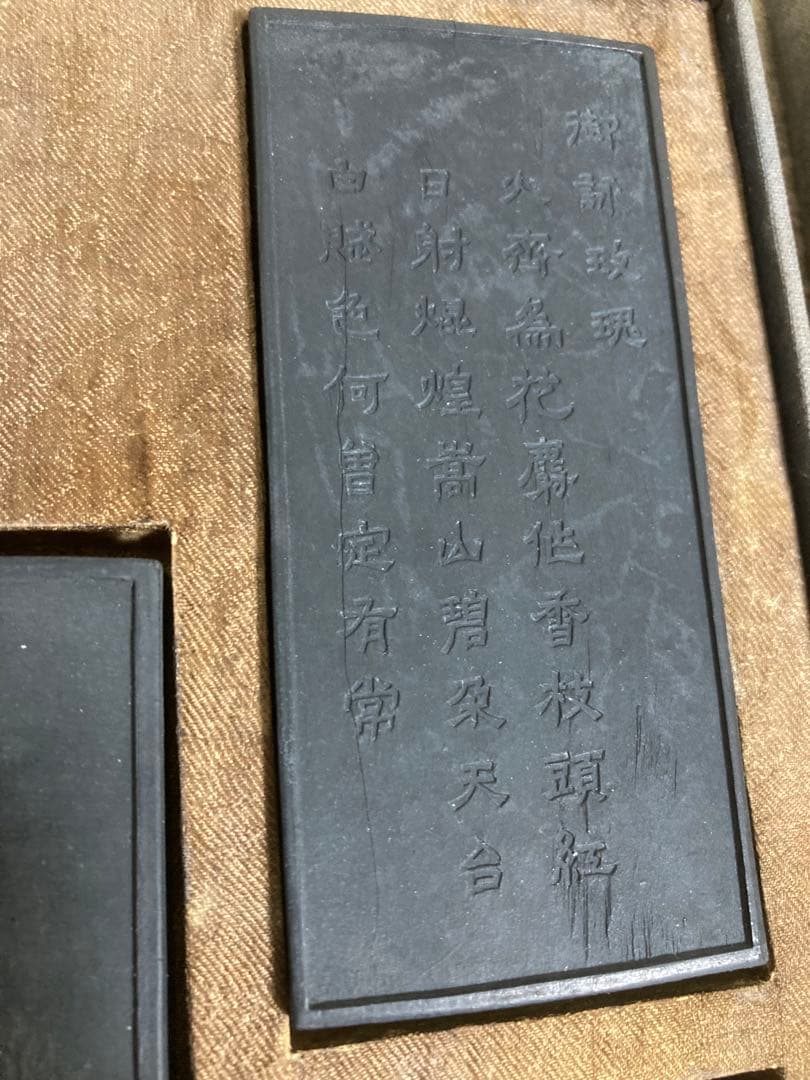 御詠玫瑰
火齊為花麝作香枝頭紅
日射焜煌嵩山碧朵天台
白賦色何曾定有常